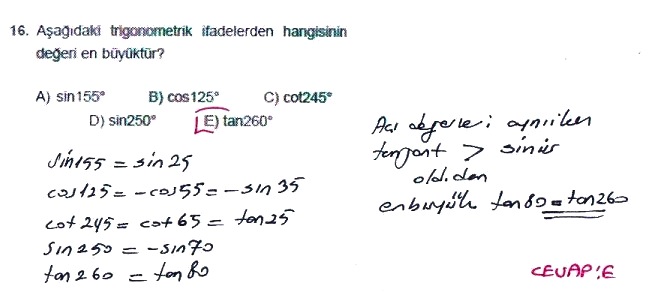 16. Aşağıdaki trigonometrik ifadelerden hangisinin
değeri en büyüktür?
A) sin155° B) cos125° C) cot245°
D) sin250° E) tan260°
sin155 = sin 25
cos125 = -cos55 = -sin 35
cot 245 = cot 65 = tan25
sin 250 = -sin70
tan 260 = tan 80
Açı değerleri aynıiken
tanjant > sinüs
old.dan
enbüyük tan80 = tan260
CEVAP:E